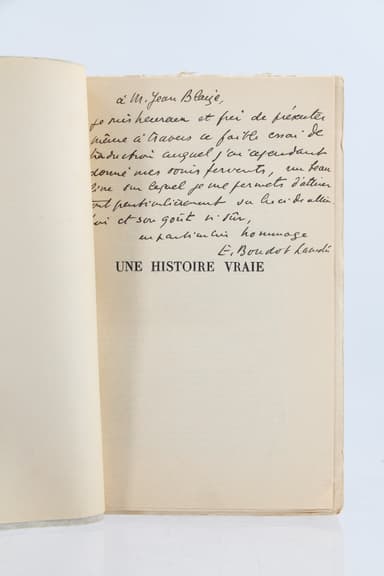 à M. Jean Blaize,
je suis heureux et fier de présenter
même à travers ce faible essai de
traduction auquel j'ai cependant
donné mes soins fervents, un beau
livre sur lequel je me permets d'attirer
tout particulièrement
et son goût si sûr,
en particulier hommage
E. Boudot
UNE HISTOIRE VRAIE